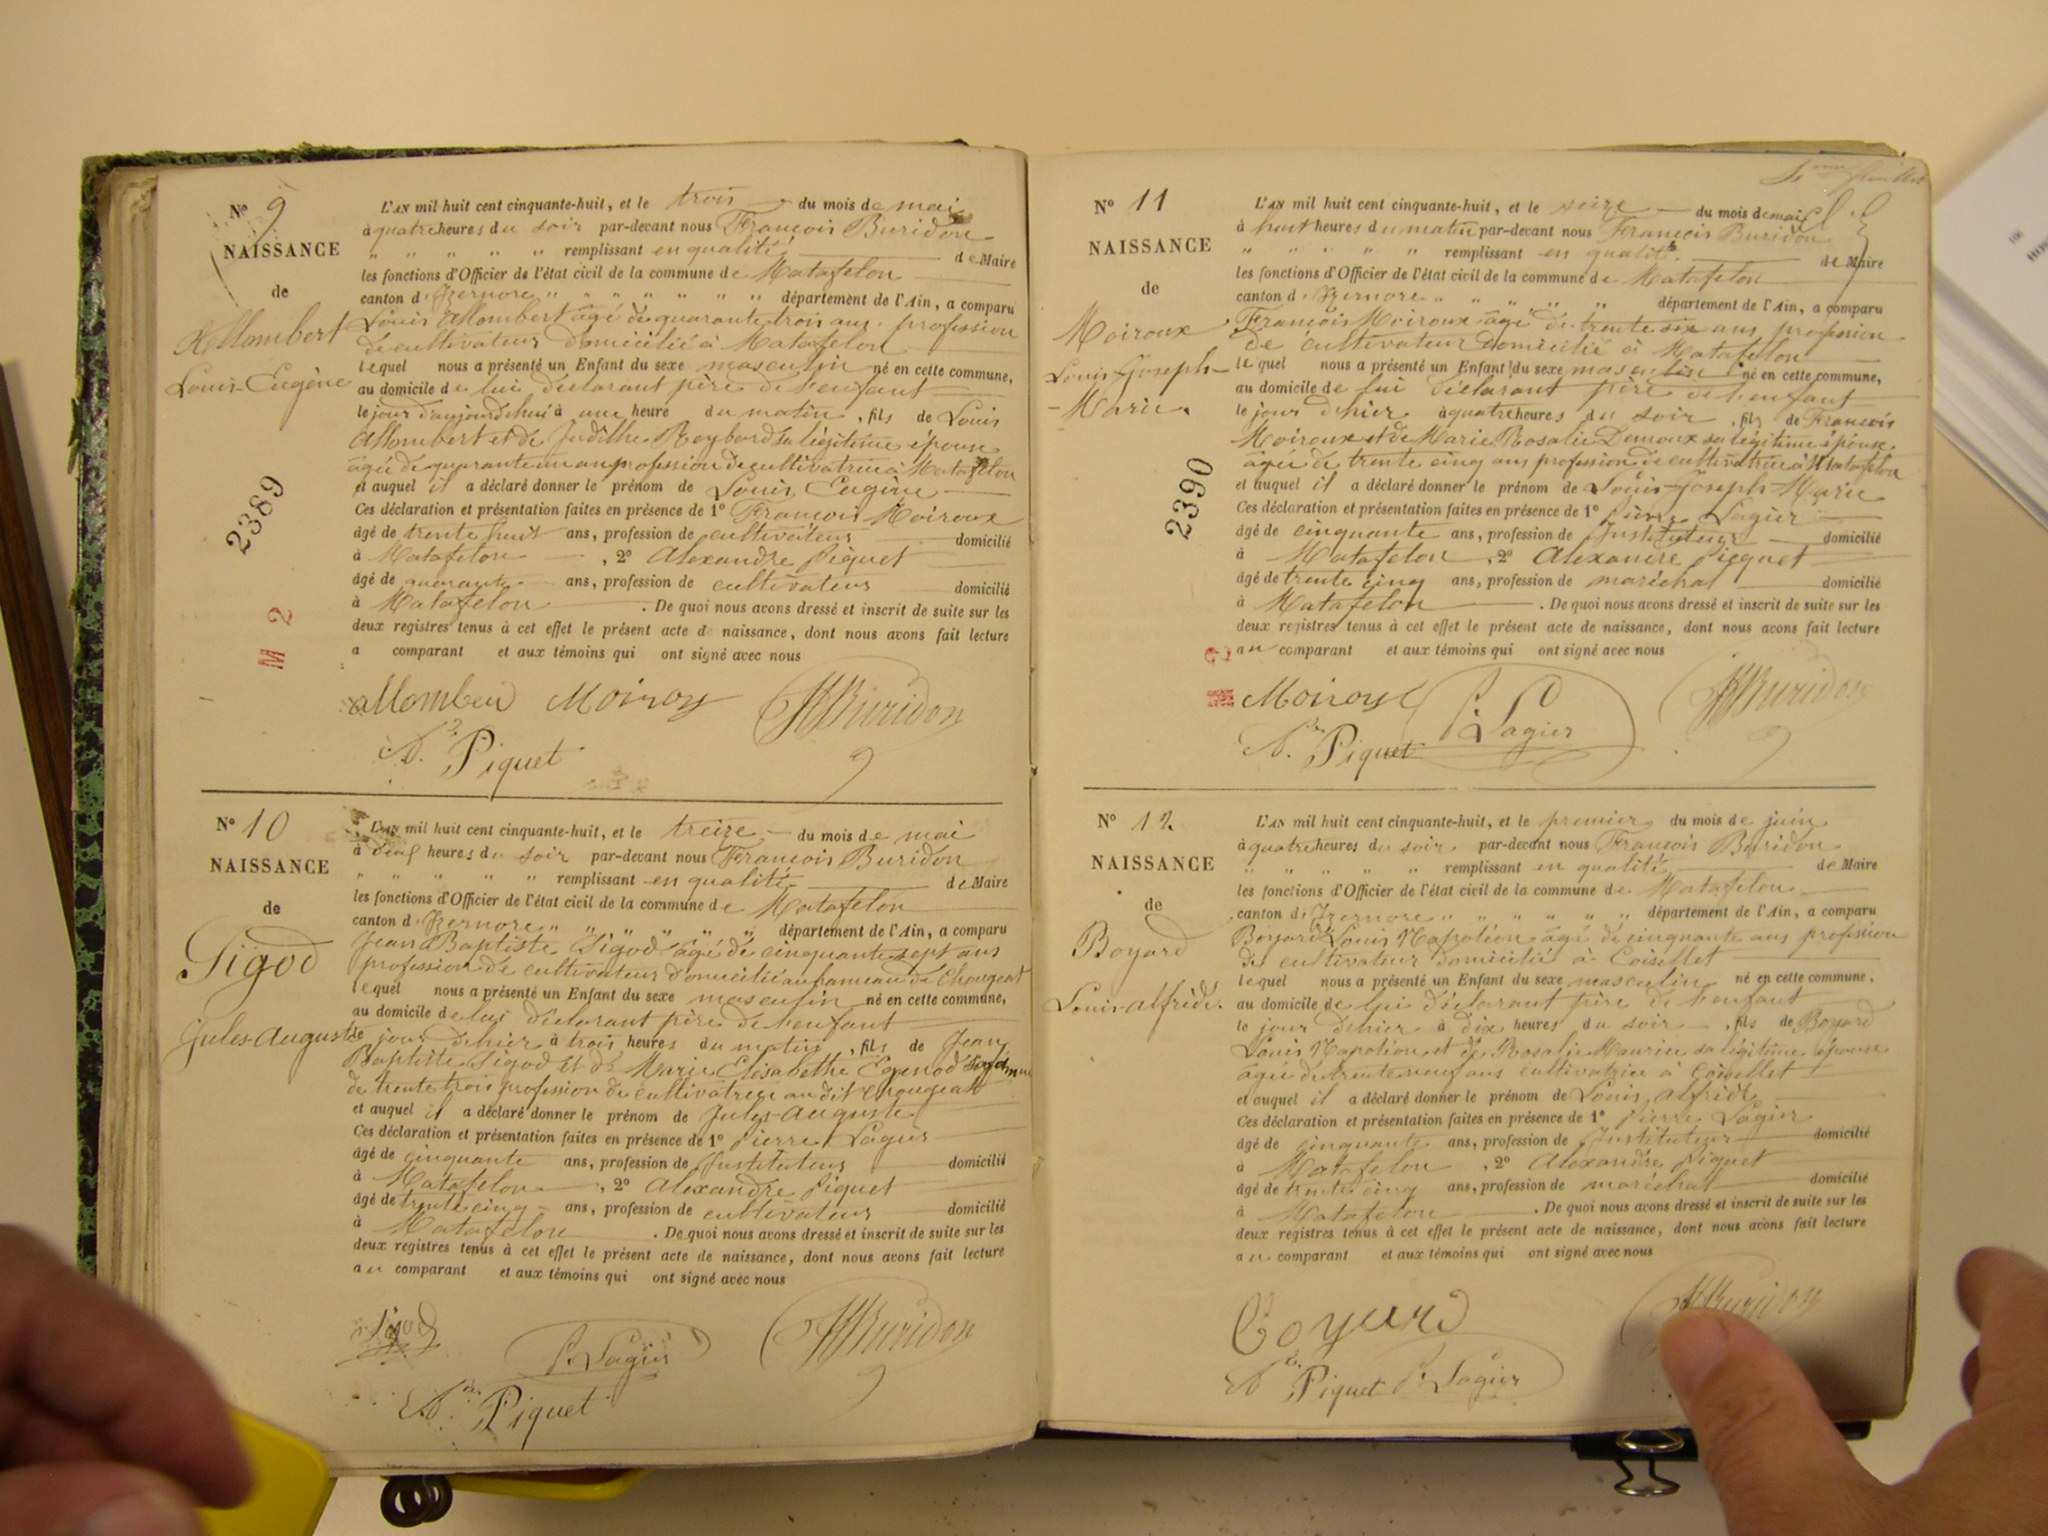 N° 9
NAISSANCE
de
Allombert
Louis Eugène
2389
M 2
L'AN mil huit cent cinquante-huit, et le trois du mois de mai
à quatre heures du soir par-devant nous François Buridon
" " " " " " remplissant en qualité de Maire
les fonctions d'Officier de l'état civil de la commune de Matafelon
canton d'Izernore " " " " " " " département de l'Ain, a comparu
Louis Allombert âgé de quarante trois ans profession
de cultivateur domicilié à Matafelon
lequel nous a présenté un Enfant du sexe masculin né en cette commune,
au domicile de lui déclarant père de l'enfant
le jour d'aujourd'hui à une heure du matin, fils de Louis
Allombert et de Judithe Reybard sa légitime épouse
âgée de quarante un an profession de cultivatrice à Matafelon
et auquel il a déclaré donner le prénom de Louis Eugène
Ces déclaration et présentation faites en présence de 1° François Moiroux
âgé de trente huit ans, profession de cultivateur domicilié
à Matafelon, 2° Alexandre Piquet
âgé de quarante ans, profession de cultivateur domicilié
à Matafelon. De quoi nous avons dressé et inscrit de suite sur les
deux registres tenus à cet effet le présent acte de naissance, dont nous avons fait lecture
a comparant et aux témoins qui ont signé avec nous
Moiroux Buridon
Piquet
N° 10
NAISSANCE
de
Sigod
Jules Auguste
L'AN mil huit cent cinquante-huit, et le treize du mois de mai
à deux heures du soir par-devant nous François Buridon
" " " " " remplissant en qualité de Maire
les fonctions d'Officier de l'état civil de la commune de Matafelon
canton d'Izernore " " " " " " département de l'Ain, a comparu
Jean Baptiste Sigod âgé de cinquante sept ans
profession de cultivateur domicilié au hameau de Chougeat
lequel nous a présenté un Enfant du sexe masculin né en cette commune,
au domicile de lui déclarant père de l'enfant
le jour d'hier à trois heures du matin, fils de Jean
Baptiste Sigod et de Marie Elisabethe
de trente trois profession de cultivatrice au dit Chougeat
et auquel il a déclaré donner le prénom de Jules-Auguste
Ces déclaration et présentation faites en présence de 1° Pierre Lagier
âgé de cinquante ans, profession de Instituteur domicilié
à Matafelon, 2° Alexandre Piquet
âgé de trente cinq ans, profession de cultivateur domicilié
à Matafelon. De quoi nous avons dressé et inscrit de suite sur les
deux registres tenus à cet effet le présent acte de naissance, dont nous avons fait lecture
au comparant et aux témoins qui ont signé avec nous
Sigod P. Lagier Buridon
Piquet
N° 11
NAISSANCE
de
Moiroux
Louis-Joseph-
-Marie.
2390
L'AN mil huit cent cinquante-huit, et le seize du mois de mai
à huit heures du matin par-devant nous François Buridon
" " " " " remplissant en qualité de Maire
les fonctions d'Officier de l'état civil de la commune de Matafelon
canton d'Izernore " " " " " département de l'Ain, a comparu
François Moiroux âgé de trente six ans profession
de cultivateur domicilié à Matafelon
lequel nous a présenté un Enfant du sexe masculin né en cette commune,
au domicile de lui déclarant père de l'enfant
le jour d'hier à quatre heures du soir, fils de François
Moiroux et de Marie Rosalie Demoux sa légitime épouse
âgée de trente cinq ans profession de cultivatrice à Matafelon
et auquel il a déclaré donner le prénom de Louis-Joseph-Marie
Ces déclaration et présentation faites en présence de 1° Pierre Lagier
âgé de cinquante ans, profession de Instituteur domicilié
à Matafelon, 2° Alexandre Picquet
âgé de trente cinq ans, profession de maréchal domicilié
à Matafelon. De quoi nous avons dressé et inscrit de suite sur les
deux registres tenus à cet effet le présent acte de naissance, dont nous avons fait lecture
au comparant et aux témoins qui ont signé avec nous
Moiroux P. Lagier Buridon
Piquet
N° 12
NAISSANCE
de
Boyard
Louis Alfride.
L'AN mil huit cent cinquante-huit, et le premier du mois de juin
à quatre heures du soir par-devant nous François Buridon
" " " " " " remplissant en qualité de Maire
les fonctions d'Officier de l'état civil de la commune de Matafelon
canton d'Izernore " " " " " " département de l'Ain, a comparu
Boyard Louis Napoléon âgé de cinquante ans profession
de cultivateur domicilié à Coisellet
lequel nous a présenté un Enfant du sexe masculin né en cette commune,
au domicile de lui déclarant père de l'enfant
le jour d'hier à dix heures du soir, fils de Boyard
Louis Napoléon et de Rosalie Maurier sa légitime épouse
âgée de trente neuf ans cultivatrice à Coisellet
et auquel il a déclaré donner le prénom de Louis Alfride
Ces déclaration et présentation faites en présence de 1° Pierre Lagier
âgé de cinquante ans, profession de Instituteur domicilié
à Matafelon, 2° Alexandre Piquet
âgé de trente cinq ans, profession de maréchal domicilié
à Matafelon. De quoi nous avons dressé et inscrit de suite sur les
deux registres tenus à cet effet le présent acte de naissance, dont nous avons fait lecture
au comparant et aux témoins qui ont signé avec nous
Boyard Buridon
Piquet P. Lagier